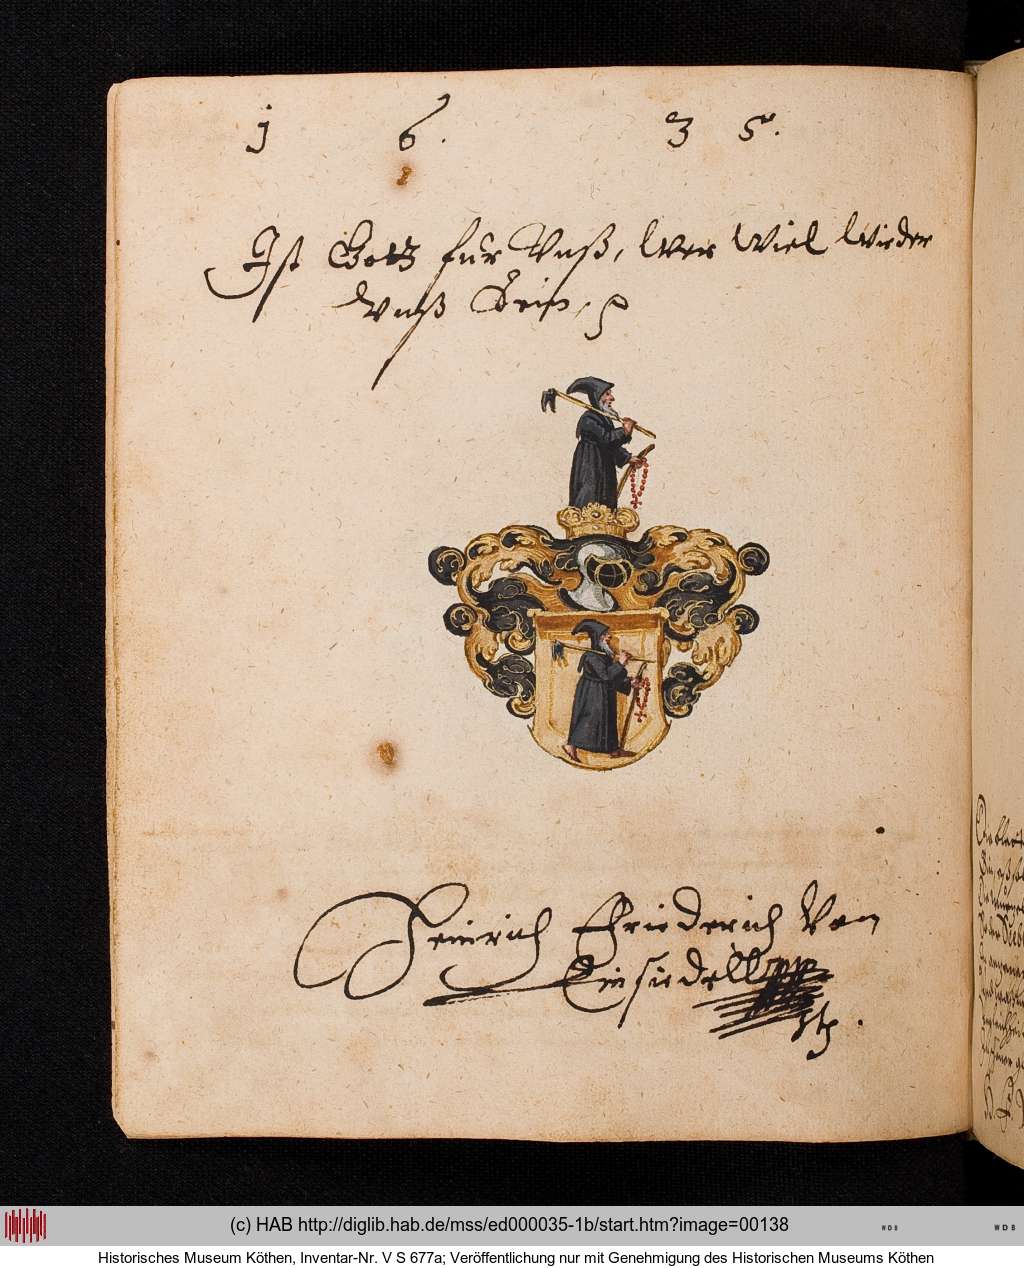 1 6. 3 5.
Ist Gott für Vnß, wer Wiel Wieder
Vnß Sein,
Heinrich Friederich Von
Einsiedell
(c) HAB http://diglib.hab.de/mss/ed000035-1b/start.htm?image=00138
WDB
WDB
Historisches Museum Köthen, Inventar-Nr. V S 677a; Veröffentlichung nur mit Genehmigung des Historischen Museums Köthen